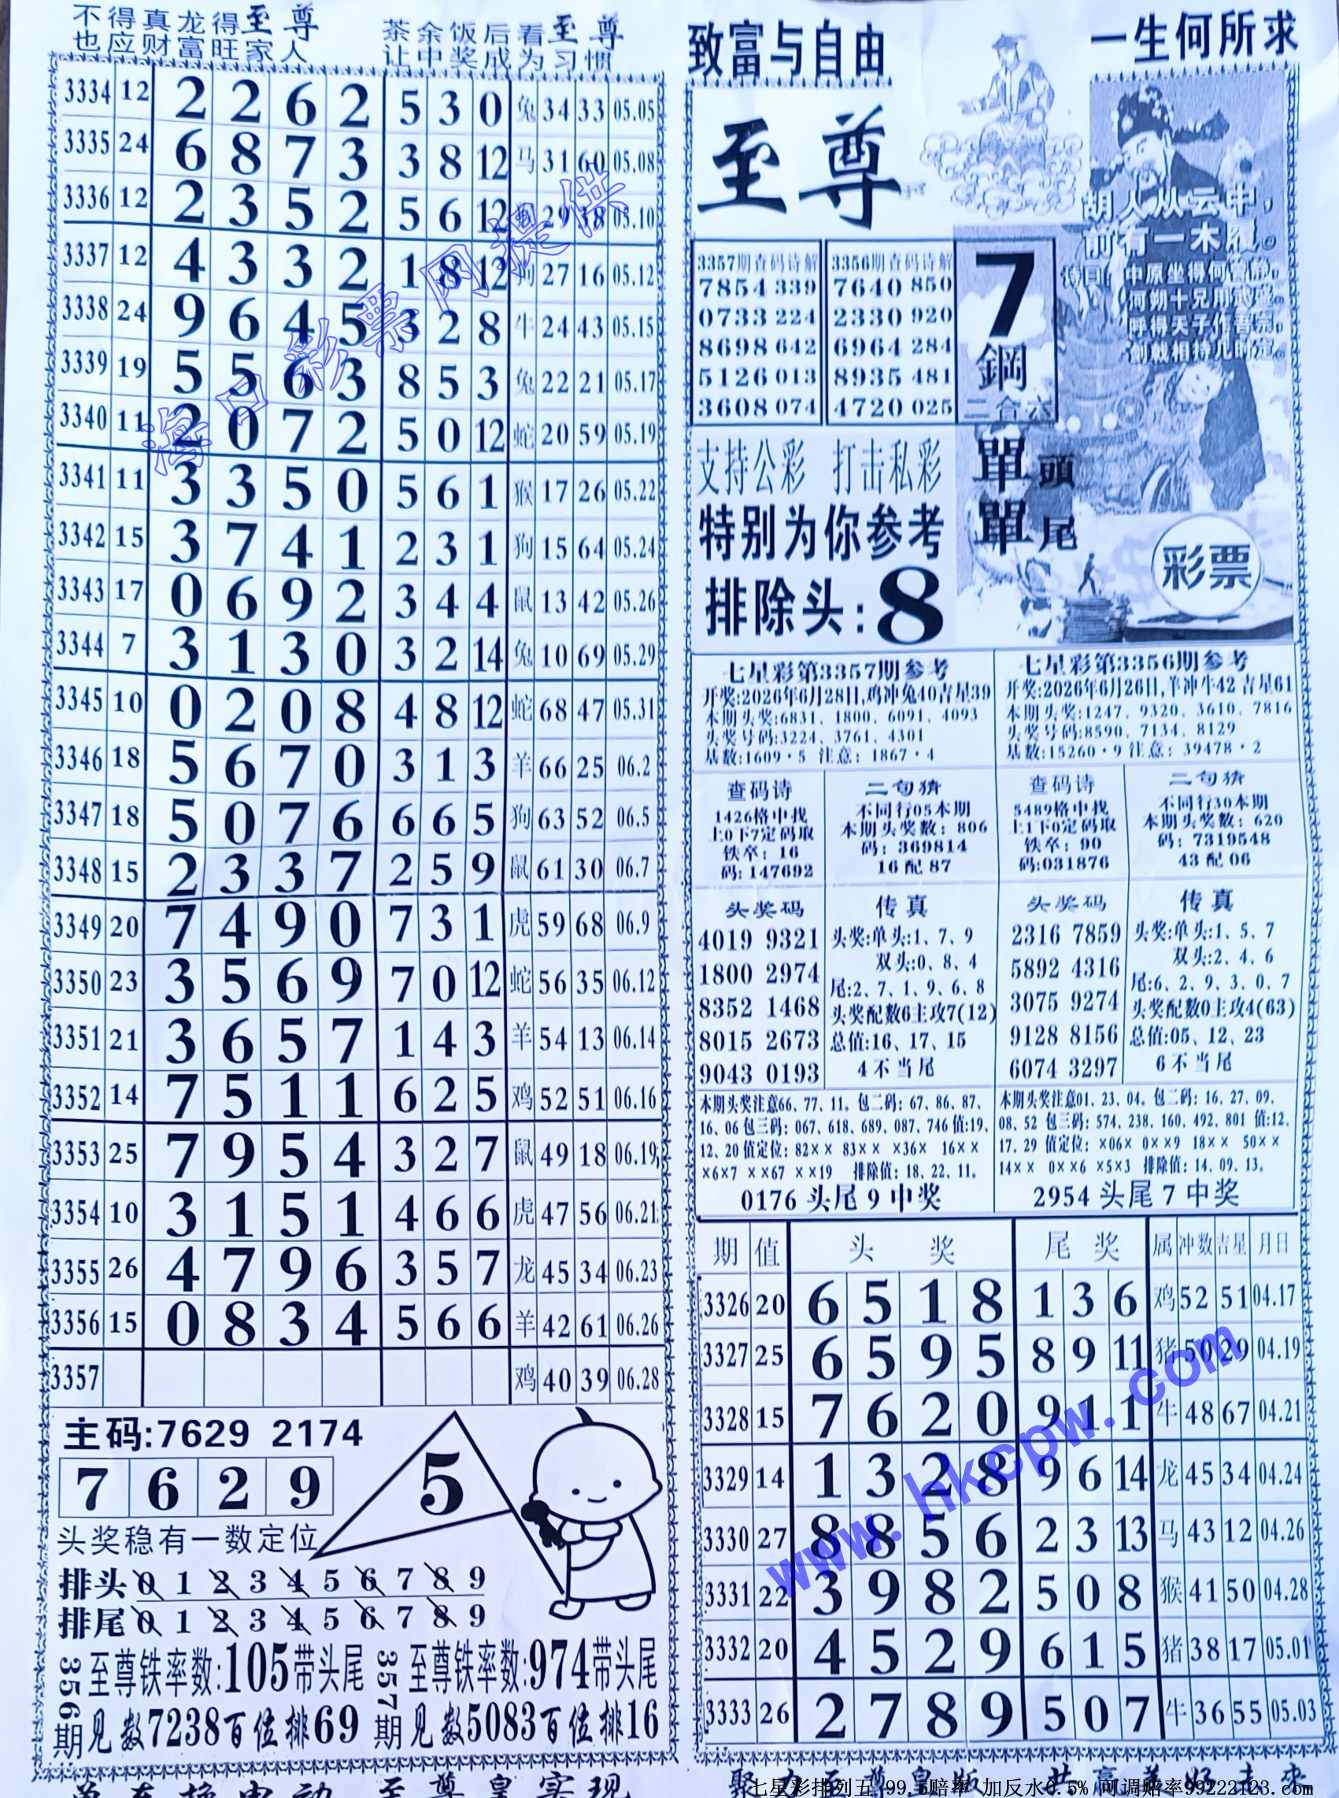 不得真龙得至尊
也应财富旺家人
茶余饭后看至尊
让中奖成为习惯
3334 12 2 2 6 2 5 3 0 兔 34 33 05.05
3335 24 6 8 7 3 3 8 12 马 31 60 05.08
3336 12 2 3 5 2 5 6 12 29 38 05.10
3337 12 4 3 3 2 1 8 12 狗 27 16 05.12
3338 24 9 6 4 5 3 2 8 牛 24 43 05.15
3339 19 5 5 6 3 8 5 3 兔 22 21 05.17
3340 11 2 0 7 2 5 0 12 蛇 20 59 05.19
3341 11 3 3 5 0 5 6 1 猴 17 26 05.22
3342 15 3 7 4 1 2 3 1 狗 15 64 05.24
3343 17 0 6 9 2 3 4 4 鼠 13 42 05.26
3344 7 3 1 3 0 3 2 14 兔 10 69 05.29
3345 10 0 2 0 8 4 8 12 蛇 68 47 05.31
3346 18 5 6 7 0 3 1 3 羊 66 25 06.2
3347 18 5 0 7 6 6 6 5 狗 63 52 06.5
3348 15 2 3 3 7 2 5 9 鼠 61 30 06.7
3349 20 7 4 9 0 7 3 1 虎 59 68 06.9
3350 23 3 5 6 9 7 0 12 蛇 56 35 06.12
3351 21 3 6 5 7 1 4 3 羊 54 13 06.14
3352 14 7 5 1 1 6 2 5 鸡 52 51 06.16
3353 25 7 9 5 4 3 2 7 鼠 49 18 06.19
3354 10 3 1 5 1 4 6 6 虎 47 56 06.21
3355 26 4 7 9 6 3 5 7 龙 45 34 06.23
3356 15 0 8 3 4 5 6 6 羊 42 61 06.26
3357 鸡 40 39 06.28
海口彩票网提供
主码:7629 2174
7 6 2 9
5
头奖稳有一数定位
排头 0 1 2 3 4 5 6 7 8 9
排尾 0 1 2 3 4 5 6 7 8 9
356期 至尊铁率数:105带头尾
见数7238百位排69
357期 至尊铁率数:974带头尾
见数5083百位排16
致富与自由
一生何所求
至尊
胡人从云中，
前有一木履。
诗曰：中原坐得何管静。
3357期查码诗解
7854 339
0733 224
8698 642
5126 013
3608 074
3356期查码诗解
7640 850
2330 920
6964 284
8935 481
4720 025
7
鋼
二合六
單頭
單尾
支持公彩 打击私彩
特别为你参考
排除头:8
彩票
七星彩第3357期参考
开奖:2026年6月28日,鸡冲兔40吉星39
本期头奖:6831、1800、6091、4093
头奖号码:3224、3761、4301
基数:1609·5 注意：1867·4
七星彩第3356期参考
开奖:2026年6月26日,羊冲牛42 吉星61
本期头奖:1247、9320、3610、7816
头奖号码:8590、7134、8129
基数:15260·9 注意：39478·2
查码诗
1426格中找
上0下7定码取
铁卒：16
码:147692
二句猜
不同行05本期
本期头奖数：806
码：369814
16配87
查码诗
5489格中找
上1下0定码取
铁卒：90
码:031876
二句猜
不同行30本期
本期头奖数：620
码：7319548
43配06
头奖码
4019 9321
1800 2974
8352 1468
8015 2673
9043 0193
传真
头奖:单头:1、7、9
双头:0、8、4
尾:2、7、1、9、6、8
头奖配数6主攻7(12)
总值:16、17、15
4不当尾
头奖码
2316 7859
5892 4316
3075 9274
9128 8156
6074 3297
传真
头奖:单头:1、5、7
双头:2、4、6
尾:6、2、9、3、0、7
头奖配数0主攻4(63)
总值:05、12、23
6不当尾
本期头奖注意66、77、11。包二码：67、86、87、
16、06包三码：067、618、689、087、746值:19、
12、20值定位：82×× 83×× ×36× 16××
×6×7 ××67 ××19 排除值：18、22、11。
0176头尾9中奖
本期头奖注意01、23、04。包二码：16、27、09、
08、52包三码：574、238、160、492、801 值:12、
17、29 值定位：×06× 0××9 18×× 50××
14×× 0××6 ×5×3 排除值：14、09、13。
2954头尾7中奖
期 值 头奖 尾奖 属 冲数 吉星 月日
3326 20 6 5 1 8 1 3 6 鸡 52 51 04.17
3327 25 6 5 9 5 8 9 11 猪 50 29 04.19
3328 15 7 6 2 0 9 1 1 牛 48 67 04.21
3329 14 1 3 2 8 9 6 14 龙 45 34 04.24
3330 27 8 8 5 6 2 3 13 马 43 12 04.26
3331 22 3 9 8 2 5 0 8 猴 41 50 04.28
3332 20 4 5 2 9 6 1 5 猪 38 17 05.01
3333 26 2 7 8 9 5 0 7 牛 36 55 05.03
www.hkcpw.com
七星彩排列五 99.5赔率 加反水0.5% 可调赔率99222123.com